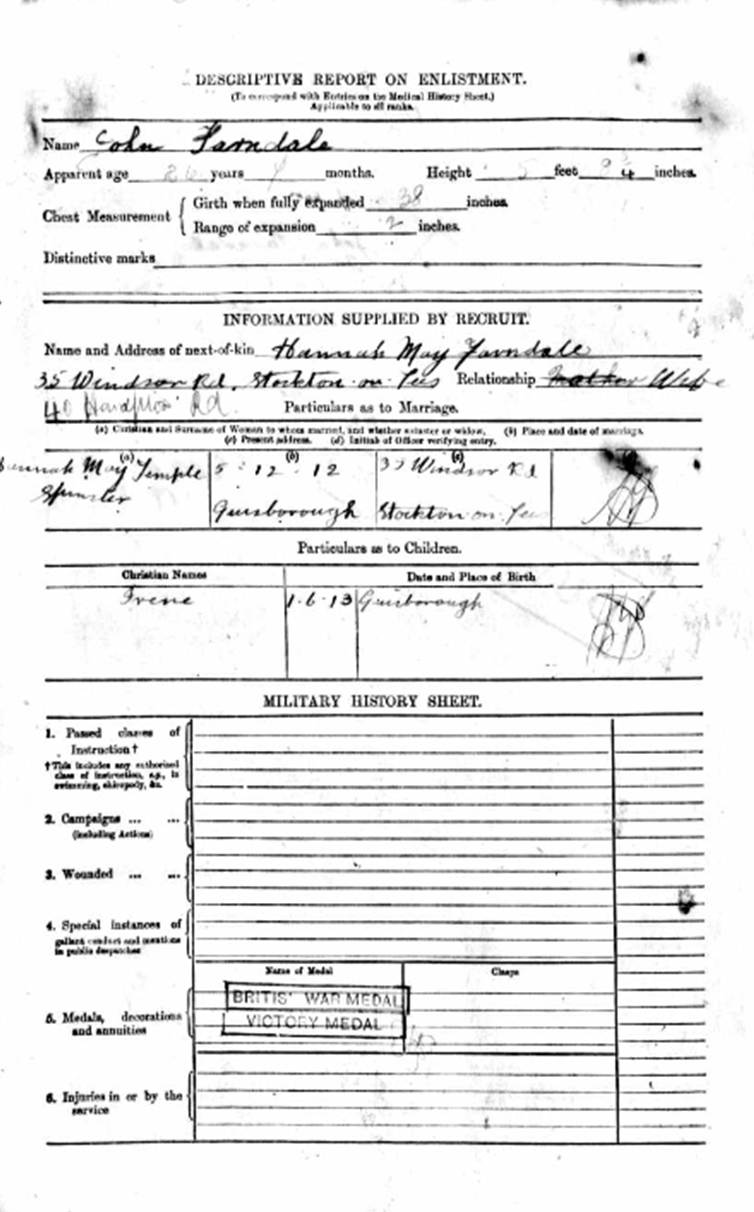 DESCRIPTIVE REPORT ON ENLISTMENT.
(To correspond with Entries on the Medical History Sheet.)
Applicable to all ranks.
Name John Farndale
Apparent age 26 years months. Height 5 feet inches.
Chest Measurement { Girth when fully expanded 38 inches.
Range of expansion 2 inches.
Distinctive marks
INFORMATION SUPPLIED BY RECRUIT.
Name and Address of next-of-kin Hannah May Farndale
35 Windsor Rd. Stockton-on-Tees Relationship Mother Wife
40 Rd.
Particulars as to Marriage.
(a) Christian and Surname of Woman to whom married, and whether spinster or widow. (b) Place and date of marriage.
(c) Present address. (d) Initials of Officer verifying entry.
(a) (b) (c)
Hannah May Temple 5 . 12 . 12 35 Windsor Rd
Spinster Guisborough Stockton-on-Tees
Particulars as to Children.
Christian Names Date and Place of Birth
Irene 1.6.13 Guisborough
MILITARY HISTORY SHEET.
1. Passed classes of
Instruction †
† This includes any authorised
class of instruction, e.g., in
swimming, chiropody, &c.
2. Campaigns ... ...
(including Actions)
3. Wounded ... ...
4. Special instances of
gallant conduct and mentions
in public despatches
Name of Medal Clasps
BRITIS' WAR MEDAL
VICTORY MEDAL
5. Medals, decorations
and annuities
6. Injuries in or by the
service